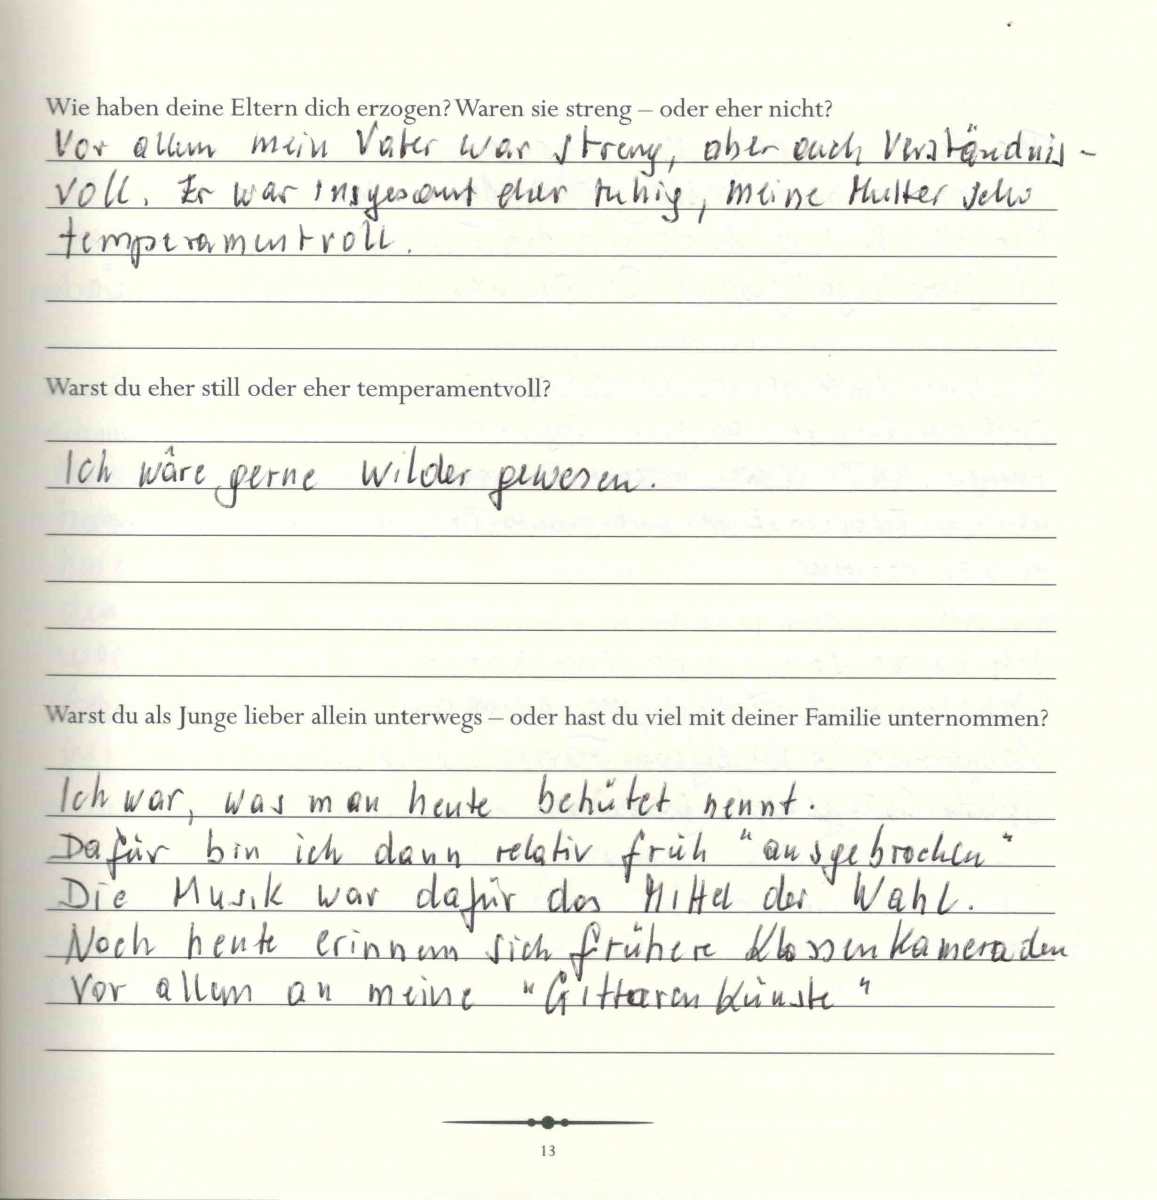 Wie haben deine Eltern dich erzogen? Waren sie streng – oder eher nicht?
Vor allem mein Vater war streng, aber auch Verständnis-
voll. Er war insgesamt eher ruhig, meine Mutter sehr
temperamentvoll.
Warst du eher still oder eher temperamentvoll?
Ich wäre gerne wilder gewesen.
Warst du als Junge lieber allein unterwegs – oder hast du viel mit deiner Familie unternommen?
Ich war, was man heute behütet nennt.
Dafür bin ich dann relativ früh "ausgebrochen"
Die Musik war dafür das Mittel der Wahl.
Noch heute erinnern sich frühere Klassenkameraden
Vor allem an meine "Gittarenkünste"
13